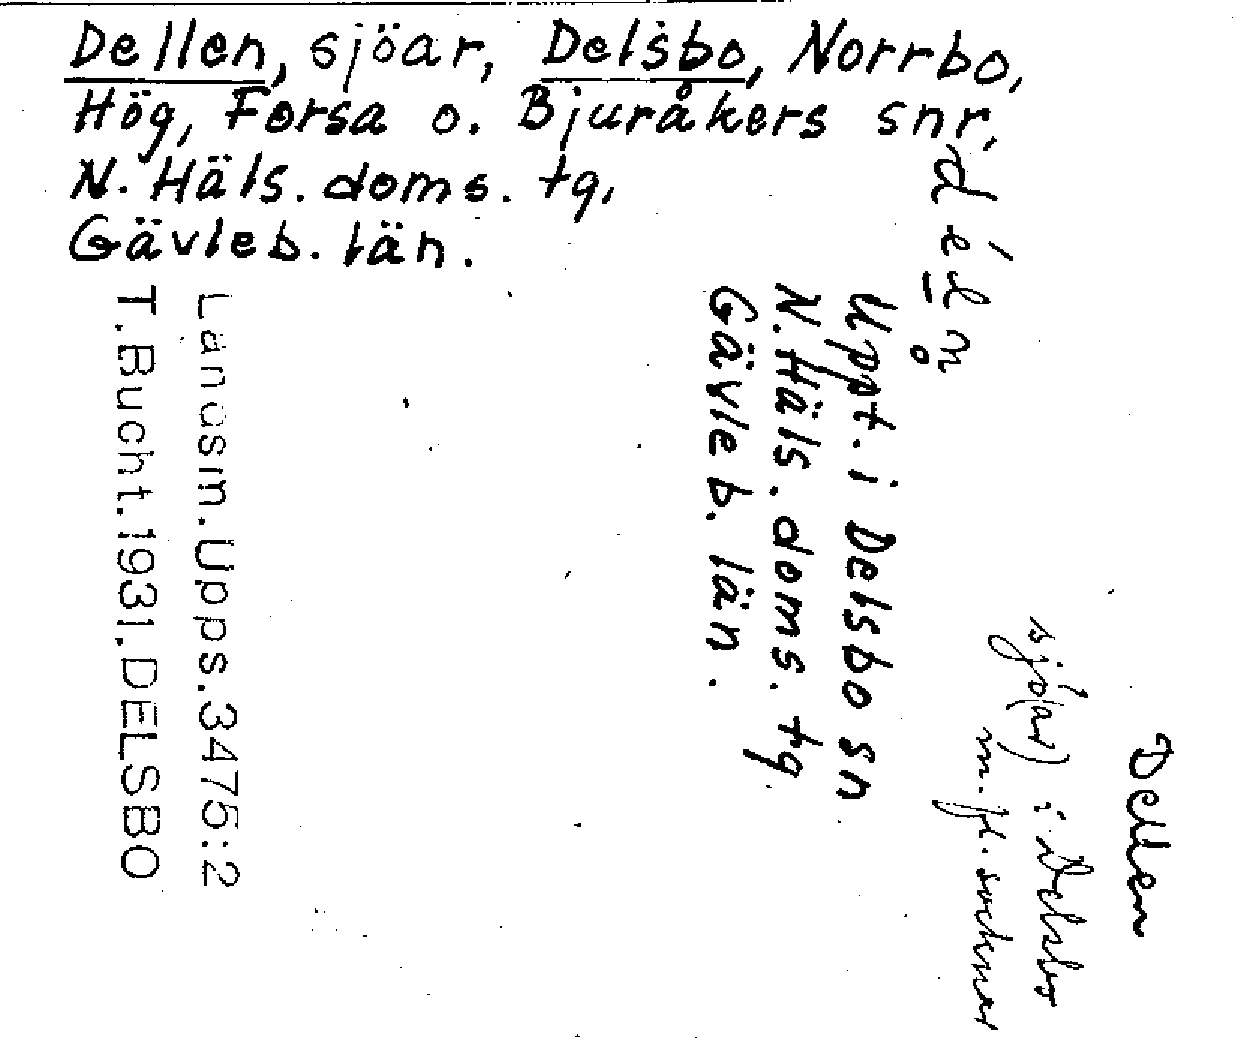 Dellen, sjöar, Delsbo, Norrbo,
Hög, Forsa o. Bjuråkers snr,
N. Häls. doms. tg,
Gävleb. län.
Dellen
sjö(ar) i Delsbo
m. fl. socknar
déln̥
Uppt. i Delsbo sn
N. Häls. doms. tg
Gävleb. län.
Landsm. Upps. 3475:2
T. Bucht. 1931. DELSBO